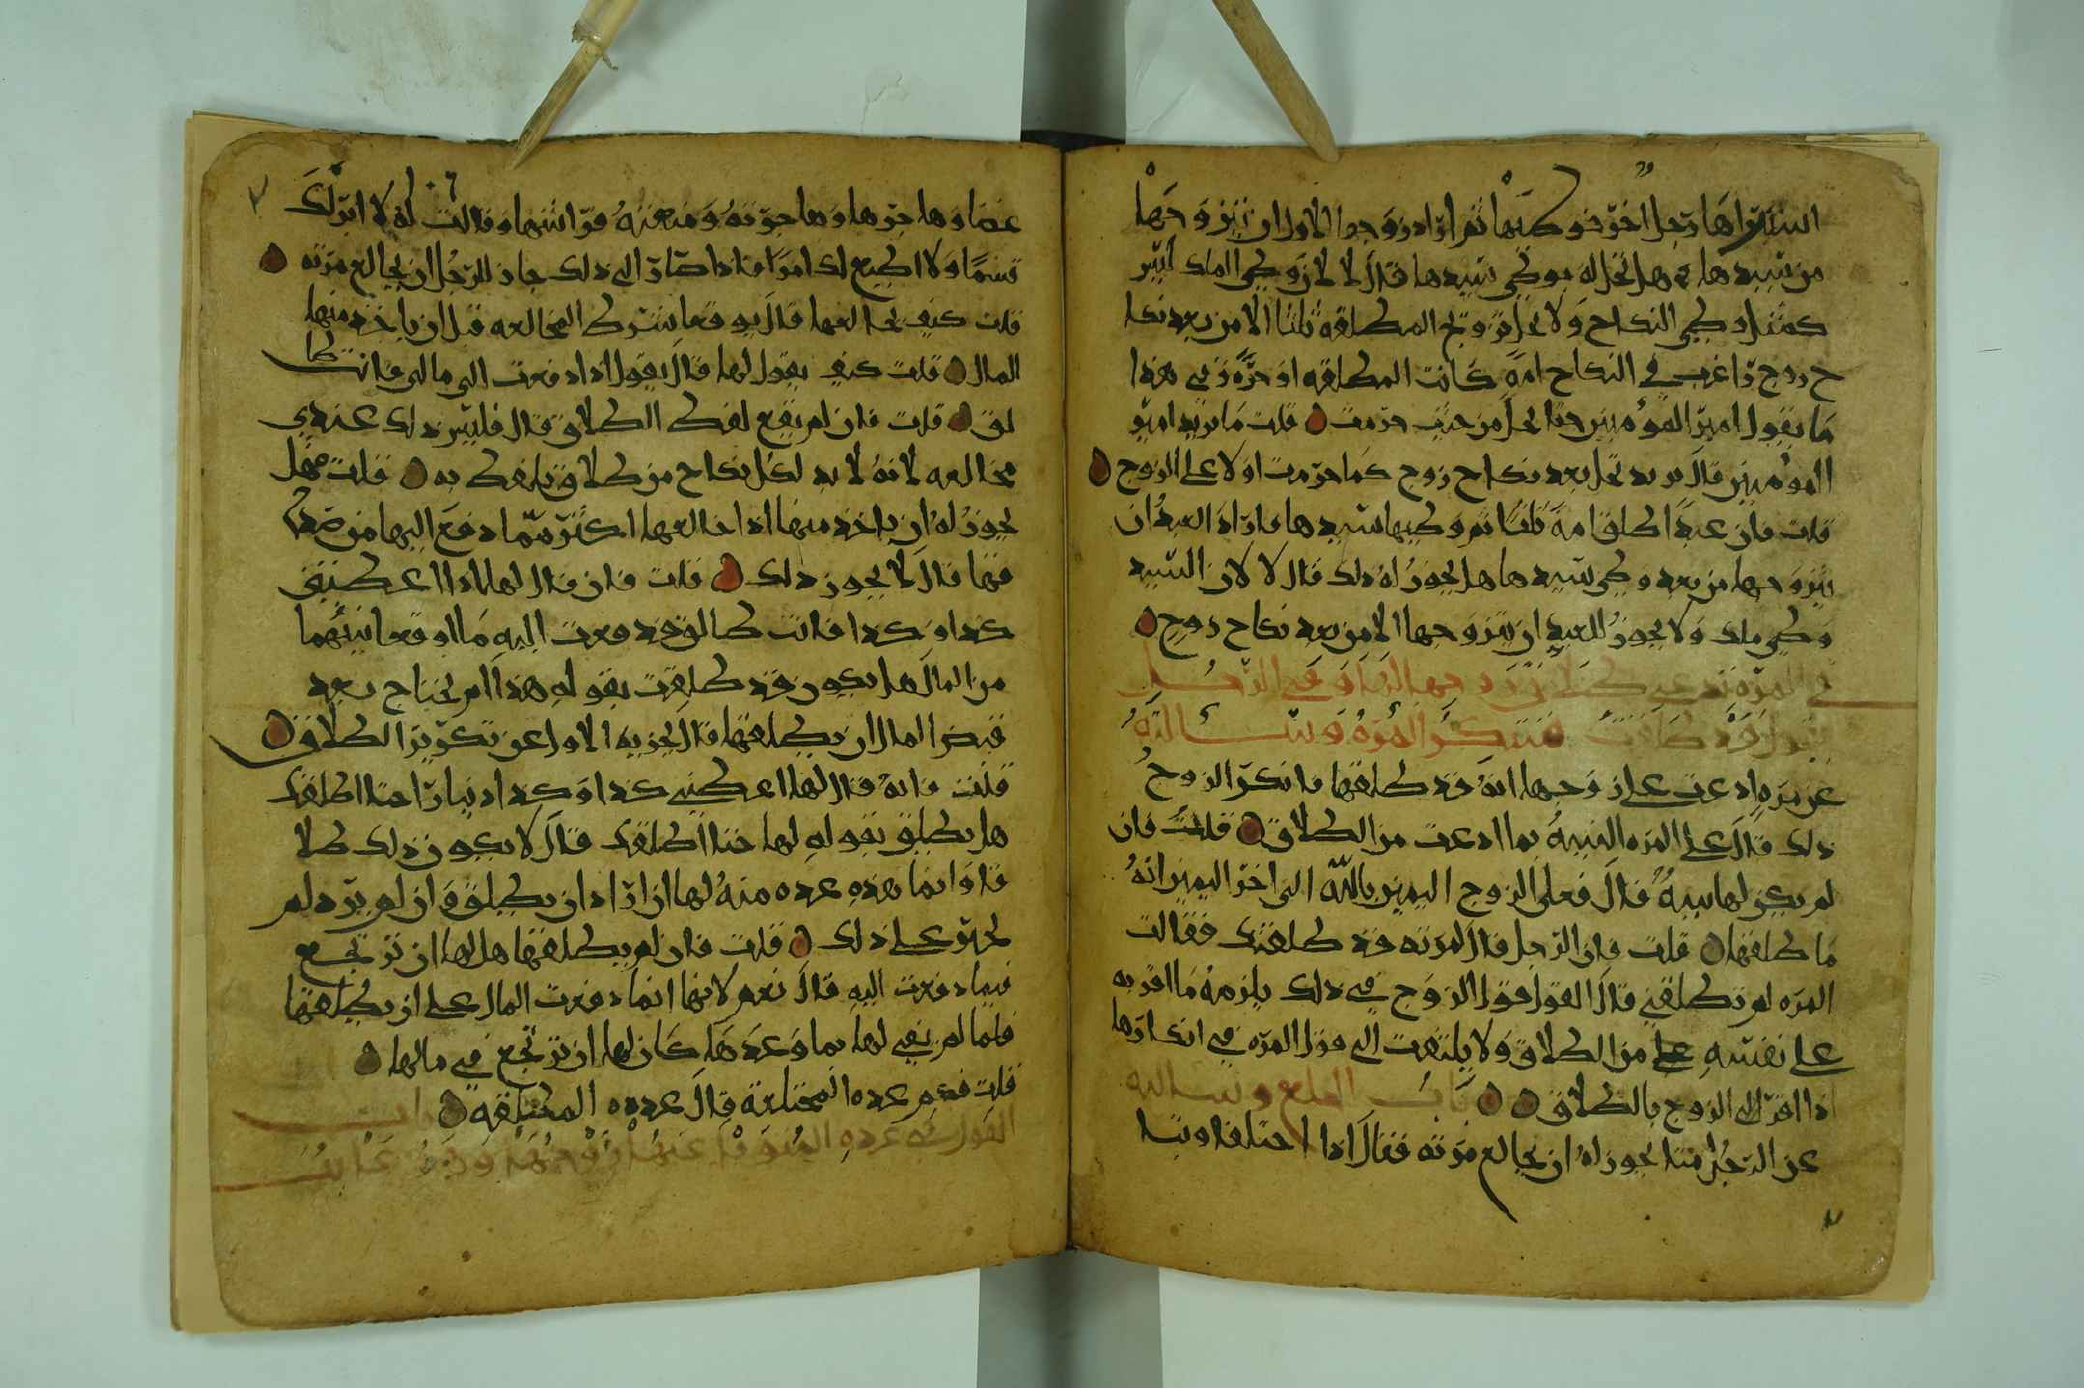 اشتراها رجل اخر فوطيها ثم اراد زوجها الاول ان يتزوجها
من سيدها هل تحل له بوطي سيدها قال لا لان وطي الملك ليس
كمثل وطي النكاح ولا يحل تزويج المطلقه ثلثا الا من بعد نكا
ح زوج راغب في النكاح امة كانت المطلقه او حره وفي هذا
ما يقول امير المؤمنين حتا تحل من حيث حرمت قلت ما يريد امير
المؤمنين قال يريد تحل بعد نكاح زوج كما حرمت اولا على الزوج
قلت فان عبدا طلق امة ثلثا ثم وطيها سيدها فاراد العبد ان
يتزوجها من بعد وطي سيدها هل يجوز له ذلك قال لا لان السيد
وطي ملك ولا يجوز للعبد ان يتزوجها الا من بعد نكاح زوج
في المره تدعي طلاق زوجها لها وفي الرجل
يقول قد طلقت فتنكر المره وسالته
عن مره ادعت على زوجها انه قد طلقها فانكر الزوج
ذلك قال على المره البينه بما ادعت من الطلاق قلت فان
لم يكن لها بينه قال فعلى الزوج اليمين بالله الى اخر اليمين انه
ما طلقها قلت فان الرجل قال لمرته قد طلقتك فقالت
المره لم تطلقني قال القول قول الزوج في ذلك يلزمه ما اقر به
على نفسه من الطلاق ولا يلتفت الى قول المره في انكارها
اذا اقر الزوج بالطلاق باب الخلع وسالته
عن الرجل متا يجوز له ان يخالع مرته فقال اذا اختلفا وتبا
غضا وهاجرها وهاجرته ومنعته فراشها وقالت له لا ابر لك
قسما ولا اطيع لك امرا فاذا صار الى ذلك جاز للرجل ان يخالع مرته
قلت كيف يخالعها قال يوقعا شرط المخالعه قبل ان ياخذ منها
المال قلت كيف يقول لها قال يقول اذا دفعت الي مالي فانت طا
لق قلت فان لم يقع لفظ الطلاق قال فليس ذلك عندي
مخالعه لانه لا بد لكل نكاح من طلاق يلفظ به قلت فهل
يجوز له ان ياخذ منها اذا خالعها اكثر مما دفع اليها من صدا
قها قال لا يجوز ذلك قلت فان قال لها اذا اعطيتني
كذا وكذا فانت طالق فدفعت اليه ما اوقعا بينهما
من المال هل يكون قد طلقت بقوله هذا ام يحتاج بعد
قبض المال ان يطلقها قال يجزيه الاول عن تكرير الطلاق
قلت فانه قال لها اعطيني كذا وكذا دينارا حتا اطلقك
هل يطلق بقوله لها حتا اطلقك قال لا يكون ذلك طلا
قا وانما هذه عده منه لها ان اراد ان يطلق وان لم يرد لم
يجبر على ذلك قلت فان لم يطلقها هل لها ان ترتجع
فيما دفعت اليه قال نعم لانها انما دفعت المال على ان يطلقها
فلما لم يفي لها بما وعدها كان لها ان ترتجع في مالها
قلت فكم عده المختلعة قال عدده المطلقه باب
القول في عدة المتوفا عنها زوجها وهو غايب